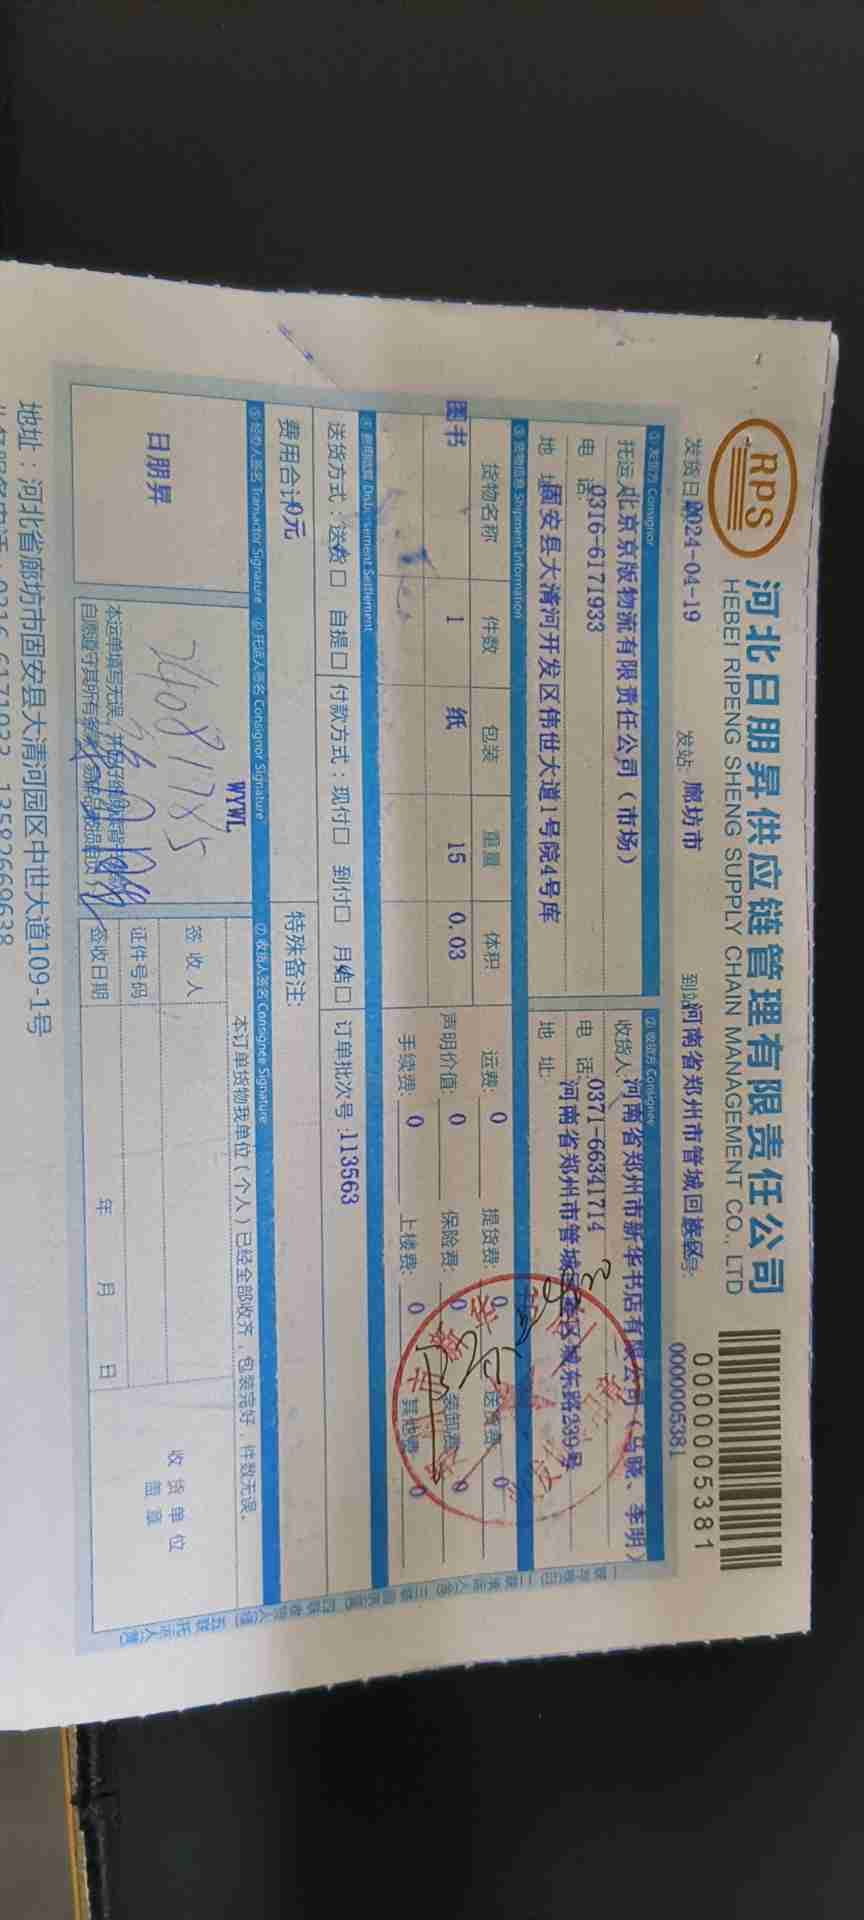 RPS
河北日朋昇供应链管理有限责任公司
HEBEI RIPENG SHENG SUPPLY CHAIN MANAGEMENT CO., LTD
0000005381
发货日期2024-04-19 发站: 廊坊市 到站河南省郑州市管城回族区号: 0000005381
①发货方 Consignor ②收货方 Consignee
托运人北京京版物流有限责任公司（市场） 收货人河南省郑州市新华书店有限公司（马晓、李明）
电 话:0316-6171933 电 话0371-66341714
地 址固安县大清河开发区伟世大道1号院4号库 地 址:河南省郑州市管城回族区城东路239号
③货物信息 Shipment Information
货物名称 件数 包装 重量 体积 运费: 0 提货费: 0 送货费 0
图书 1 纸 15 0.03 声明价值: 0 保险费: 0 装卸费 0
手续费: 0 上楼费: 0 其他费 0
④费用结算 Disbursement Settlement
送货方式: 送货口 自提口 付款方式: 现付口 到付口 月结口 订单批次号:113563
费用合计0元 特殊备注:
⑤经办人签名 Transactor Signature ⑥托运人签名 Consignor Signature ⑦收货人签名 Consignee Signature
日朋昇
WYWL
24081785
本运单填写无误，
自愿遵守其所有
本订单货物我单位（个人）已经全部收齐，包装完好，件数无误。
签收人
证件号码
签收日期 年 月 日
收货单位
盖章
地址：河北省廊坊市固安县大清河园区中世大道109-1号
0316-6171933 13582669638